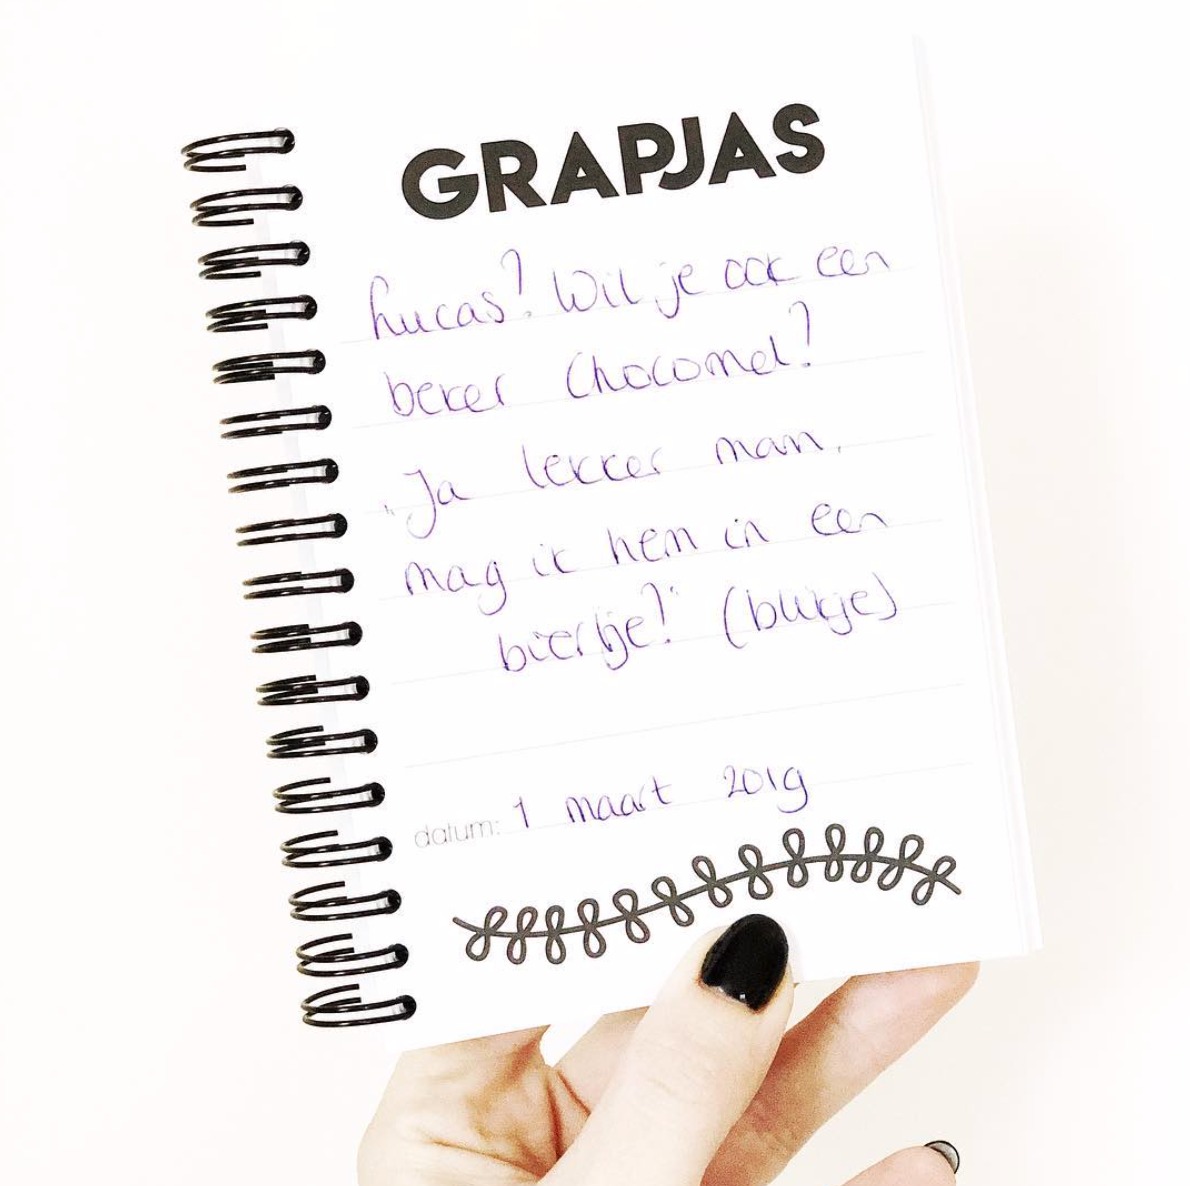 GRAPJAS
Lucas? Wil je ook een
beker Chocomel?
"Ja lekker mam,
mag ik hem in een
biertje?" (blikje)
datum: 1 maart 2019